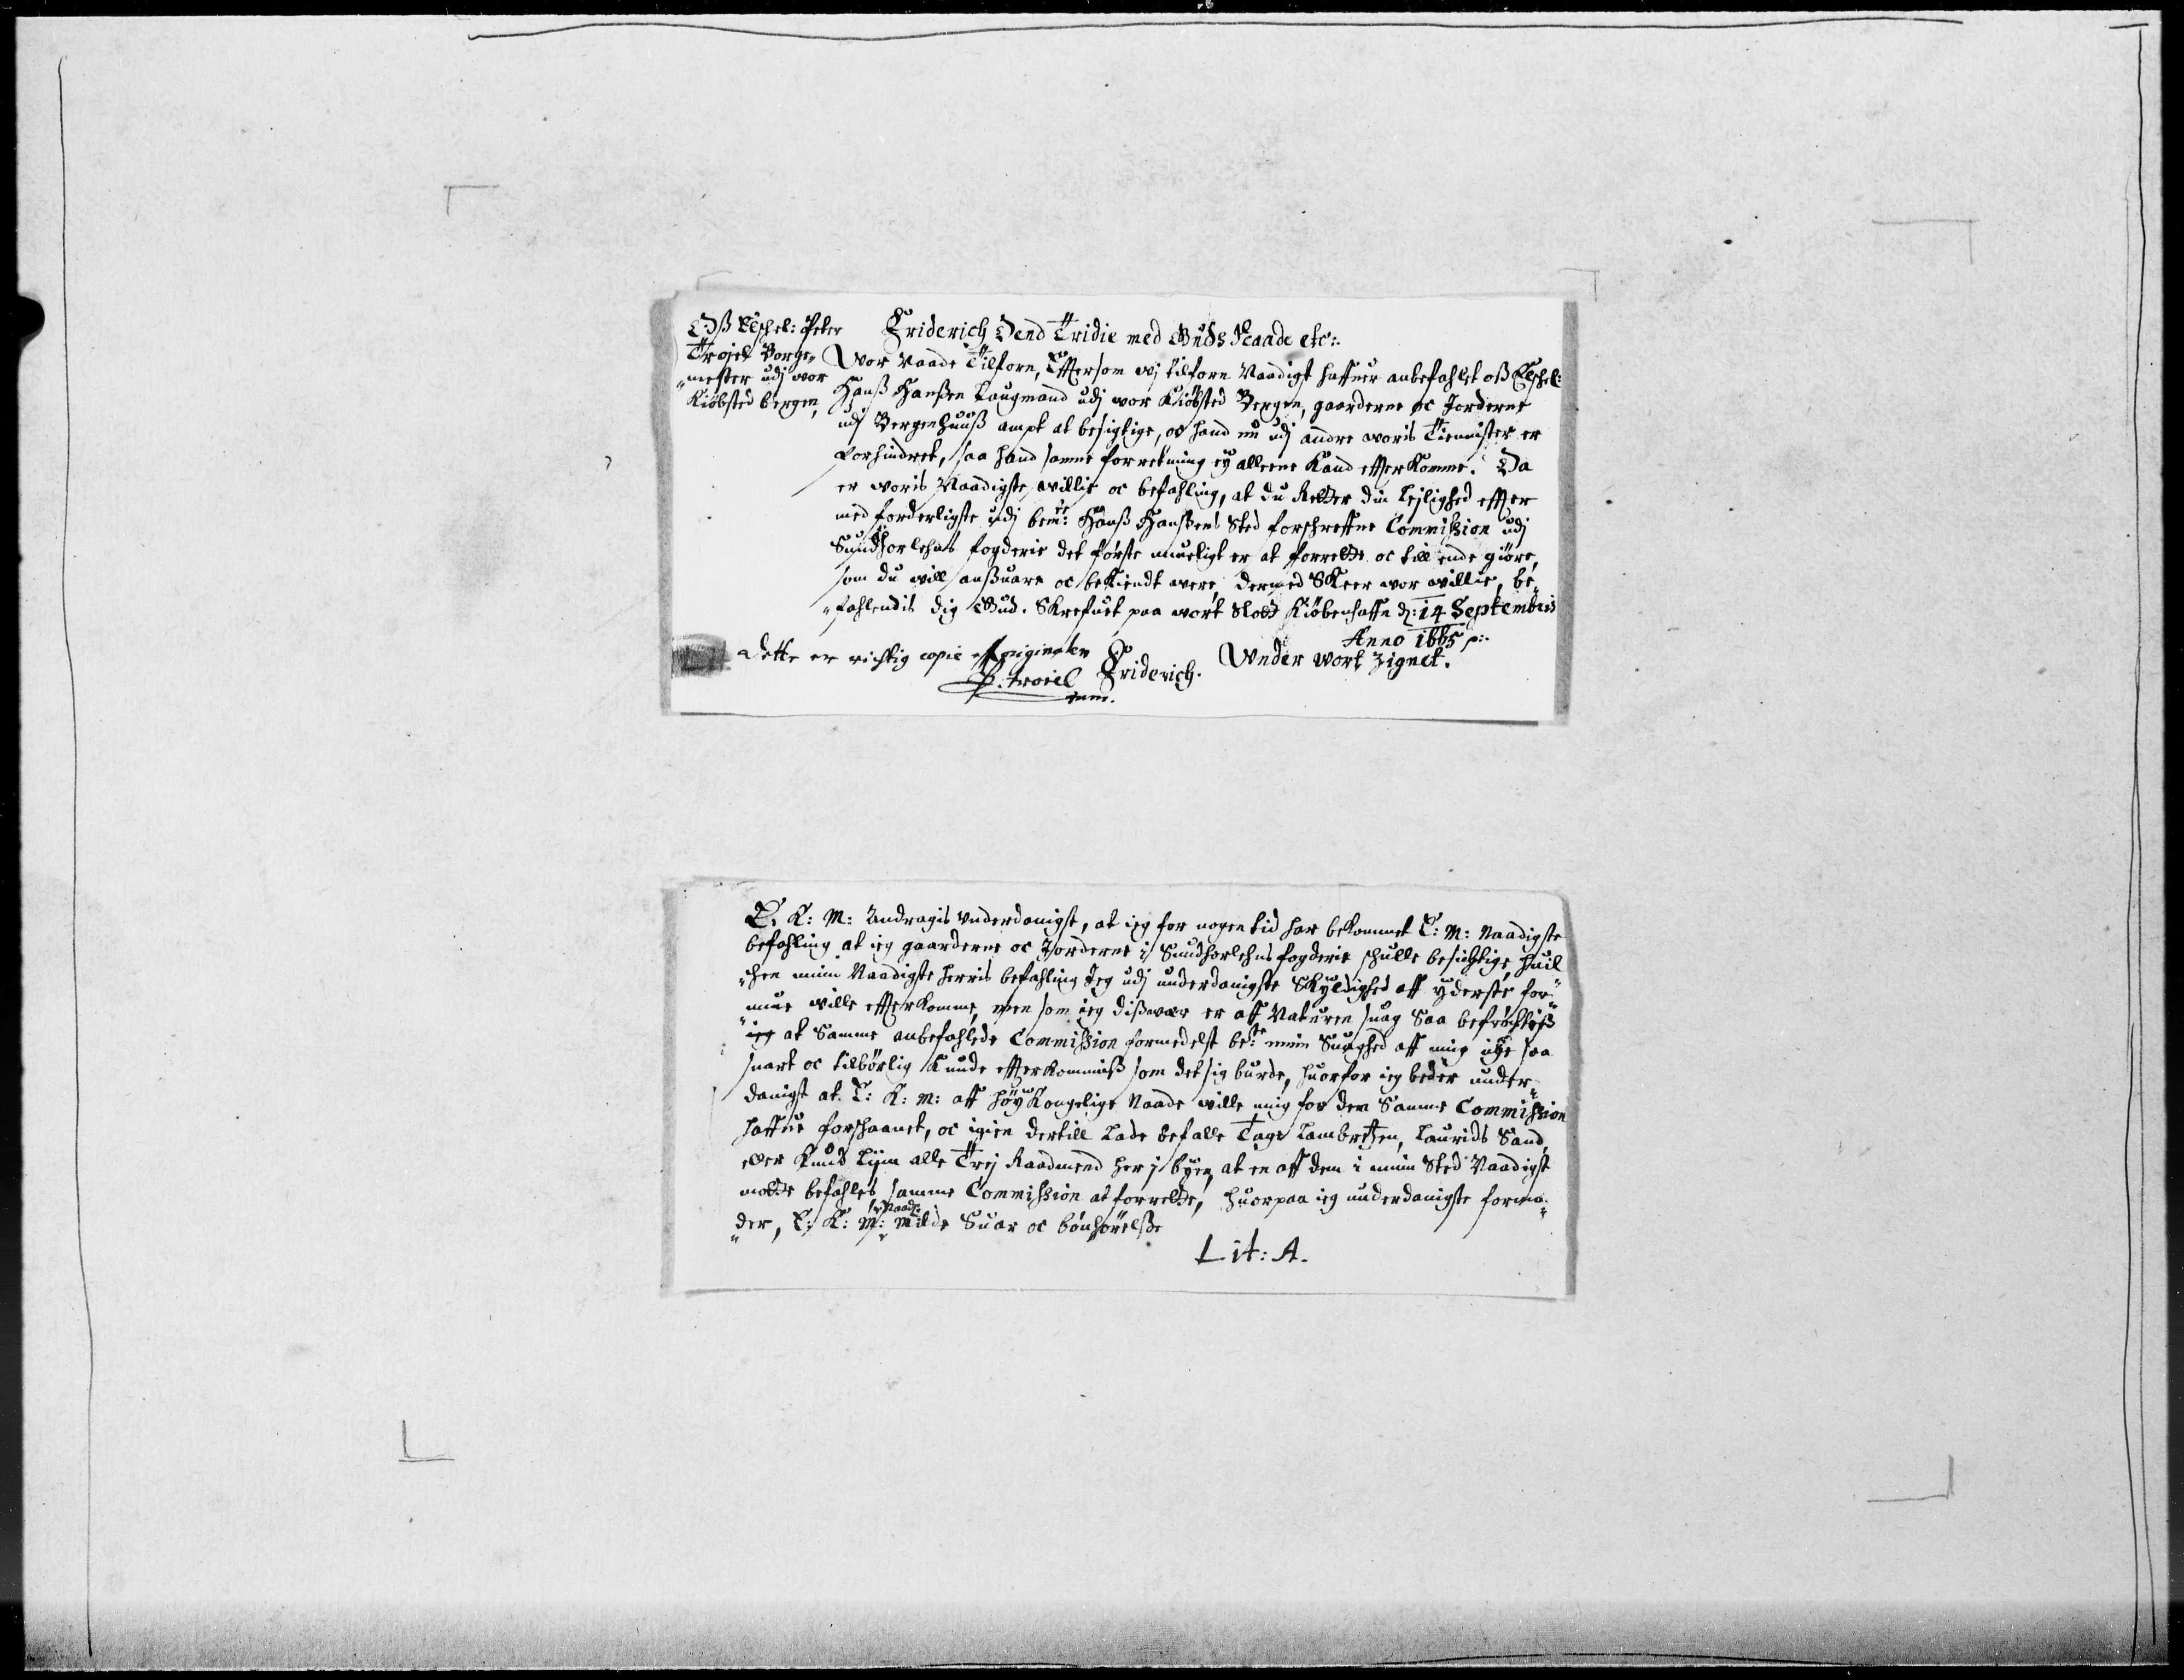 Oß Elschel: Peter
Trojel Borge„
„mester udj vor
Kiöbsted bergen,
Friderich Dend Tridie med Guds Naade etc:.
Wor Naade Tilforn, Effterson wj tilforn Naadigt haffuer anbefahlet oß Elschel:
Hanß Hanßen Laugmand udj vor Kiöbsted Bergen, gaarderne oc Jorderne
udj Bergenhuuß ampt at besigtige, oc hand nu udj andre voris Tiennister er
forhindret, saa hand samme forretning ej alleene Kand effterkomme. Da
er voris Naadigste willie oc befahling, at du Retter din Leilighed effter
med forderligste udj bemte: Hanß Hanßens Sted forschreffne Commißion udj
Sundhorlehns fogderie det förste mueligt er at forrette oc till ende giöre,
som du will anßuare oc bekiendt were, dermed Skeer vor willie, be„
„fahlendis dig Gud. Skrefuet paa vort Slott Kiöbenhaffn d: 14 Septembris
Anno 1665 p:.
Under Vort Zignet.
Friderich.
Dette er richtig copie aff originalen
P. Troiel
mm.
E. K: M: Andragis Underdanigst, at ieg for nogen tid har bekommet E: M: Naadigste
befahling at ieg gaarderne oc Jorderne i Sundhorlehns fogderie schulle besichtige, huil
„chen min Naadigste herris befahling Jeg udj underdanigste Skyldighed aff yderste for„
„mue wille effterkomme, men som ieg dißwær er aff Naturen suag Saa befrÿchtis
ieg at Samme anbefahlede Commißion formedelst bete: min Suaghed aff mig icke saa
snart oc tilbörlig Kunde effterkommiß som det sig burde, huorfor ieg beder under„
danigst at E: K: M: aff höy Kongelige Naade wille mig for den Samme Commißion
haffue forschaanet, oc igien dertill Lade befalle Tage Lambretzen, Laurids Sand,
eller Knud Lÿm alle Trej Raadmend her j byen, at en aff dem i min Sted Naadigst
motte befahles samme Commißion at forrette, huorpaa ieg underdanigste formo„
„der, E: K: M: Milde Suar oc bönhörelße
Lit: A.